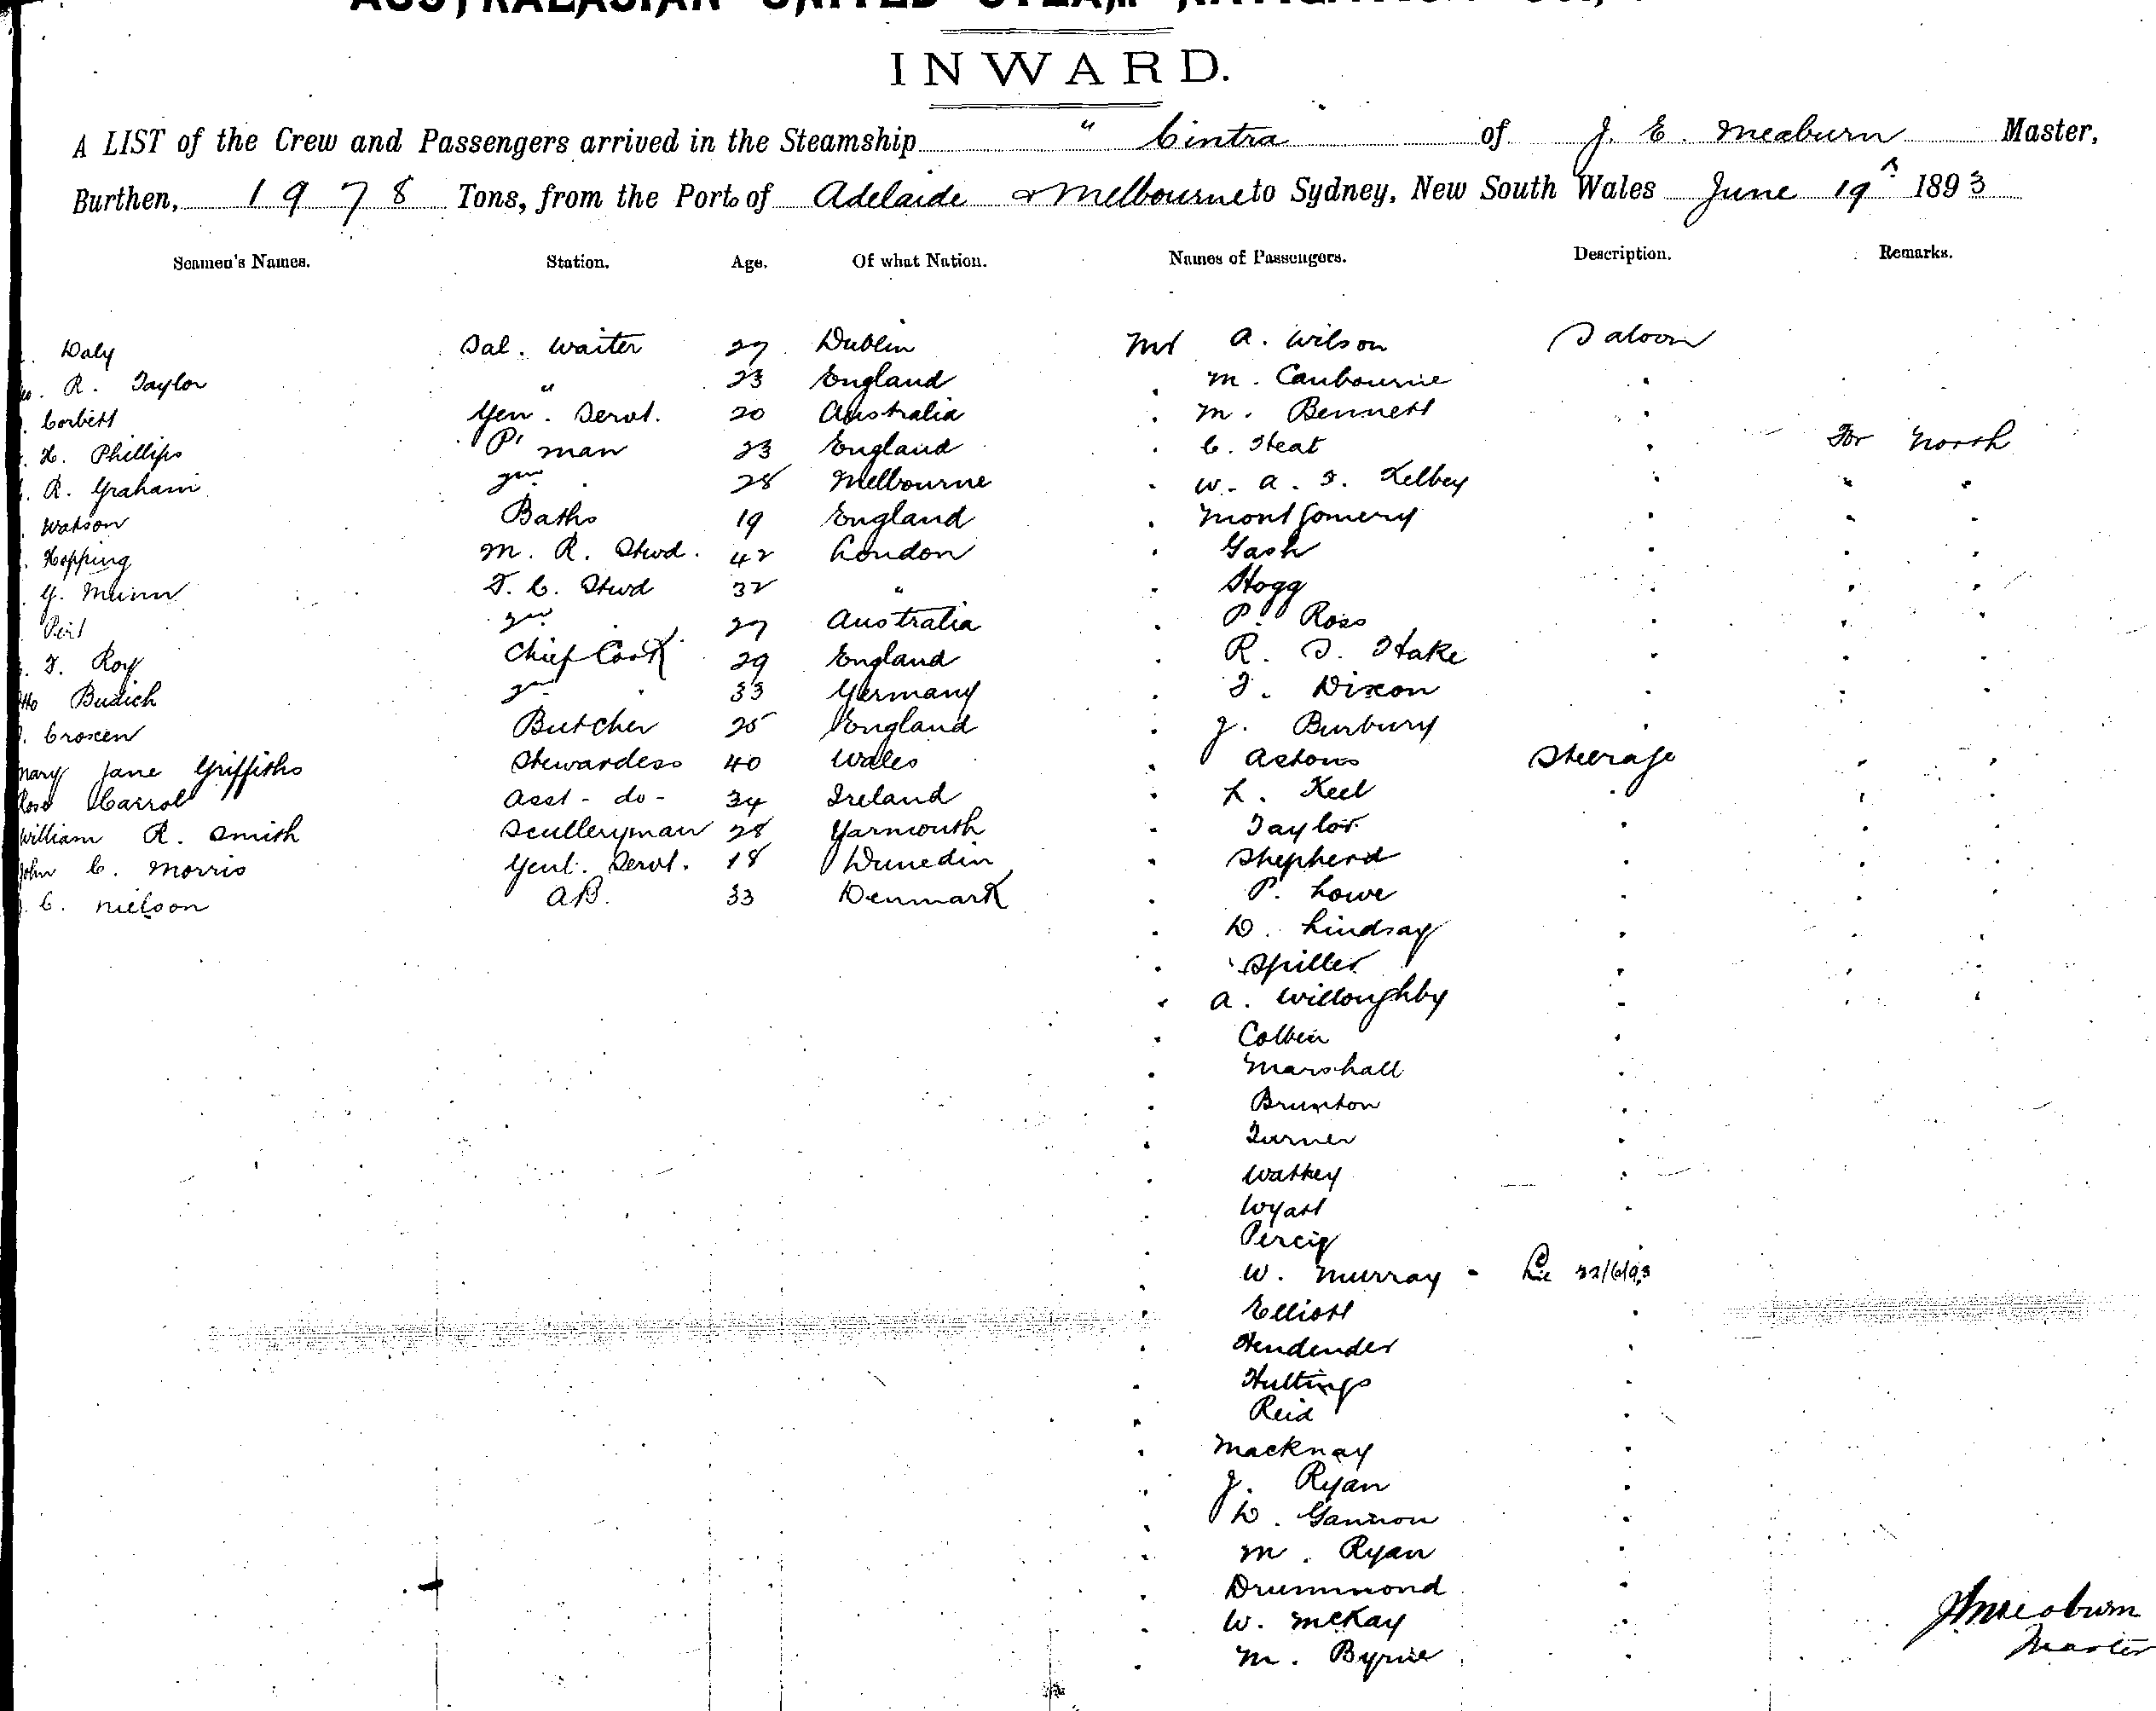 AUSTRALASIAN UNITED STEAM NAVIGATION
INWARD.
A LIST of the Crew and Passengers arrived in the Steamship " Cintra " of J. E. Meaburn Master,
Burthen, 1978 Tons, from the Port of Adelaide & Melbourne to Sydney, New South Wales June 19th 1893
Seamen's Names. Station. Age. Of what Nation. Names of Passengers. Description. Remarks.
Daly Sal. Waiter 27 Dublin Mr A. Wilson Saloon
R. Taylor " 23 England . M. Canbourne .
Corbett Gen. Servt. 20 Australia . M. Bennett .
H. Phillips P. man 23 England . C. Heat . For North
R. Graham 2nd . 28 Melbourne . W. A. S. Kelbey . " "
Watson Baths 19 England . Montgomery . " "
Hopping M. R. Stwd. 42 London . Gash . " "
G. Munn F. C. Stwd 32 " . Hogg . " "
Peil 2nd 27 Australia . P. Ross . " "
F. Roy Chief Cook 29 England . R. S. Hake . " "
Otto Budich 2nd . 33 Germany . F. Dixon . " "
Croxen Butcher 25 England . J. Burbury .
Mary Jane Griffiths Stewardess 40 Wales . Astons Steerage " "
Rose Carrol Asst - do - 34 Ireland . L. Keel . " "
William R. Smith Sculleryman 28 Yarmouth . Taylor . " "
John C. Morris Genl. Servt. 18 Dunedin . Shepherd . " "
C. Nielson AB. 33 Denmark . P. Lowe . " "
. D. Lindsay . " "
. Spiller . " "
. A. Willoughby . " "
. Colbein .
. Marshall .
. Brunton .
. Turner .
. Wattey .
. Wyatt .
. Percy .
. W. Murray - 22/6/93
. Elliott .
. Hendender .
. Hultings .
. Reid .
. Macknay .
. J. Ryan .
. D. Gannon .
. M. Ryan .
. Drummond .
. W. McKay .
. M. Byrne .
J E Meaburn
Master